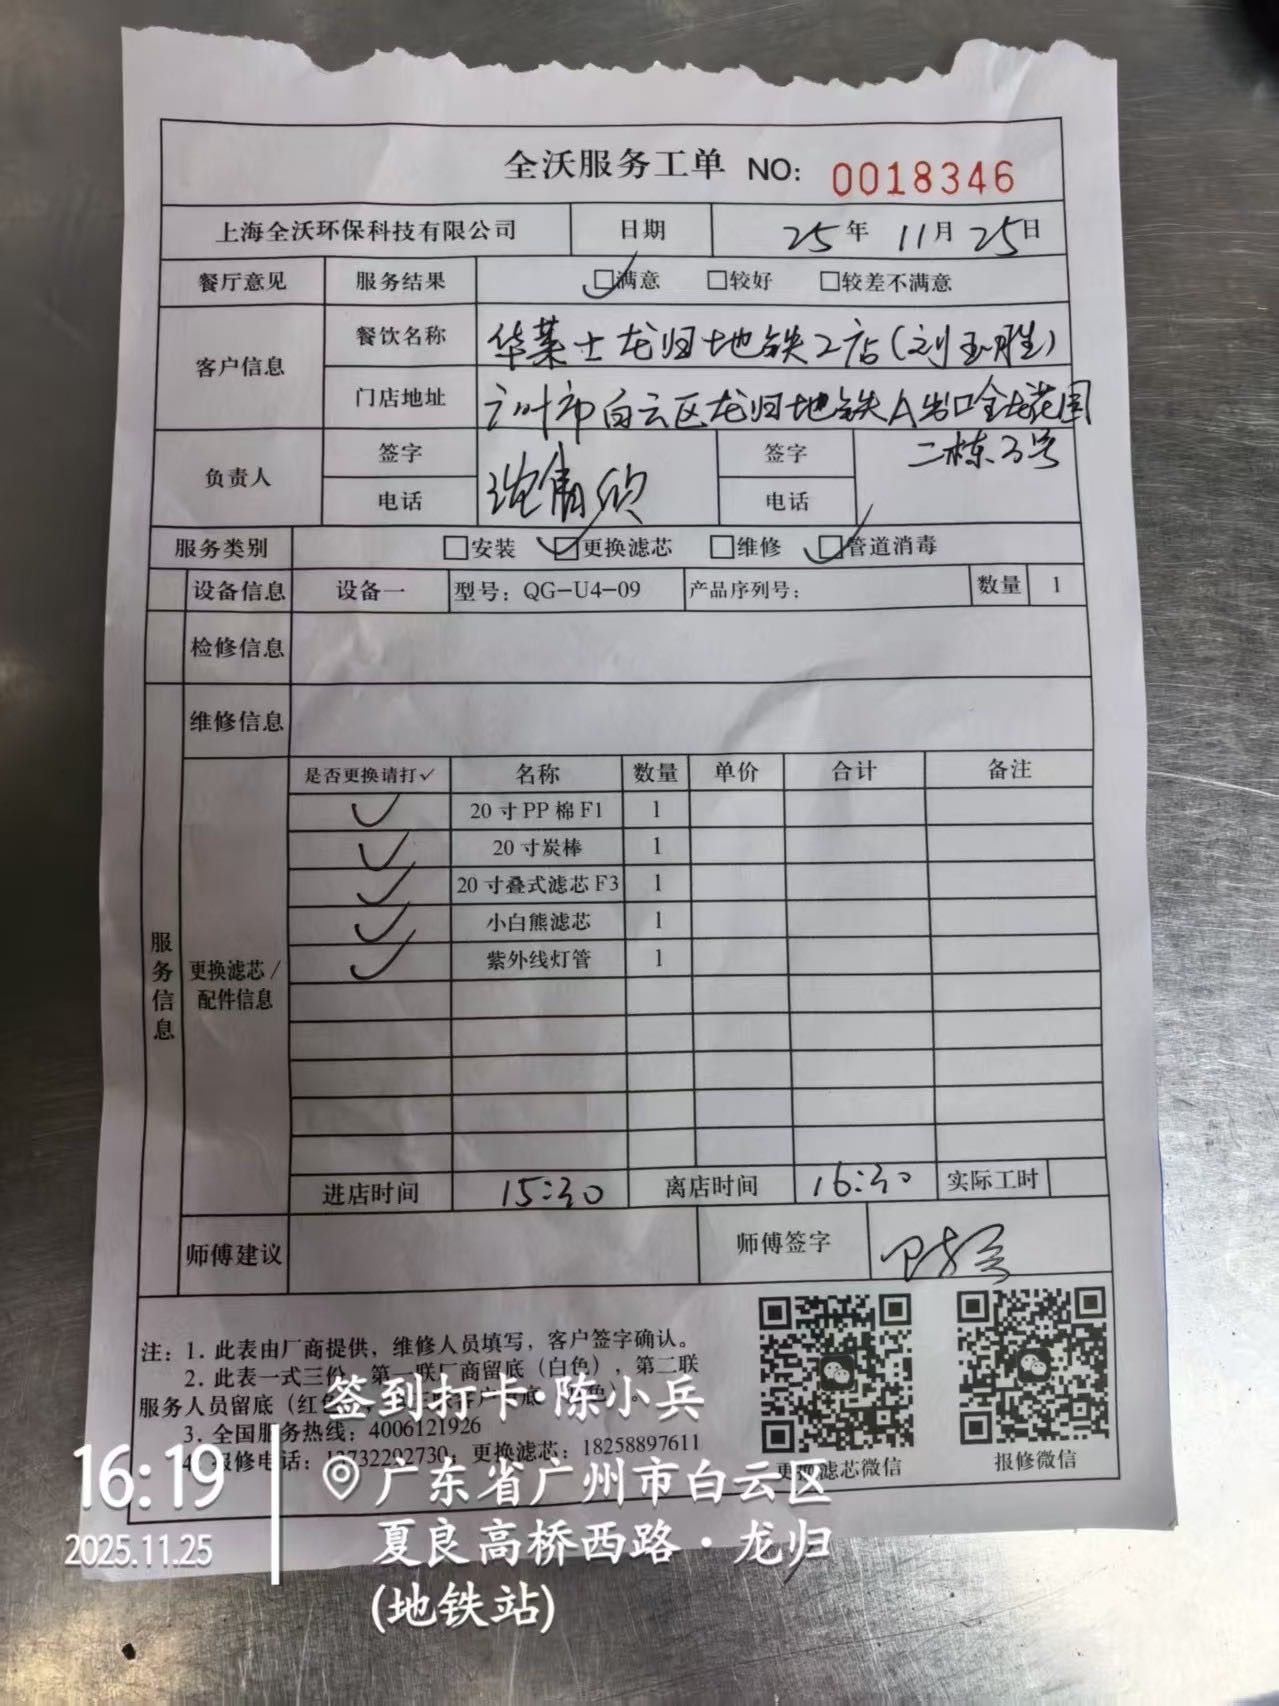 全沃服务工单 NO: 0018346
上海全沃环保科技有限公司 日期 25年 11月 25日
餐厅意见 服务结果 ✓□满意 □较好 □较差不满意
客户信息 餐饮名称 华莱士龙归地铁2店(刘玉胜)
门店地址 广州市白云区龙归地铁A出口金龙花园
二栋3号
负责人 签字 签字
电话 电话
服务类别 □安装 ✓□更换滤芯 □维修 ✓□管道消毒
设备信息 设备一 型号：QG-U4-09 产品序列号： 数量 1
检修信息
维修信息
服务信息
更换滤芯/
配件信息
是否更换请打✓ 名称 数量 单价 合计 备注
✓ 20寸PP棉F1 1
✓ 20寸炭棒 1
✓ 20寸叠式滤芯F3 1
✓ 小白熊滤芯 1
✓ 紫外线灯管 1
进店时间 15:30 离店时间 16:30 实际工时
师傅建议 师傅签字
注：1. 此表由厂商提供，维修人员填写，客户签字确认。
2. 此表一式三份，第一联厂商留底（白色），第二联
服务人员留底（红
3. 全国服务热线：4006121926
报修电话：13732292730；更换滤芯：18258897611
更换滤芯微信 报修微信
签到打卡 陈小兵
16:19
2025.11.25
广东省广州市白云区
夏良高桥西路·龙归
(地铁站)